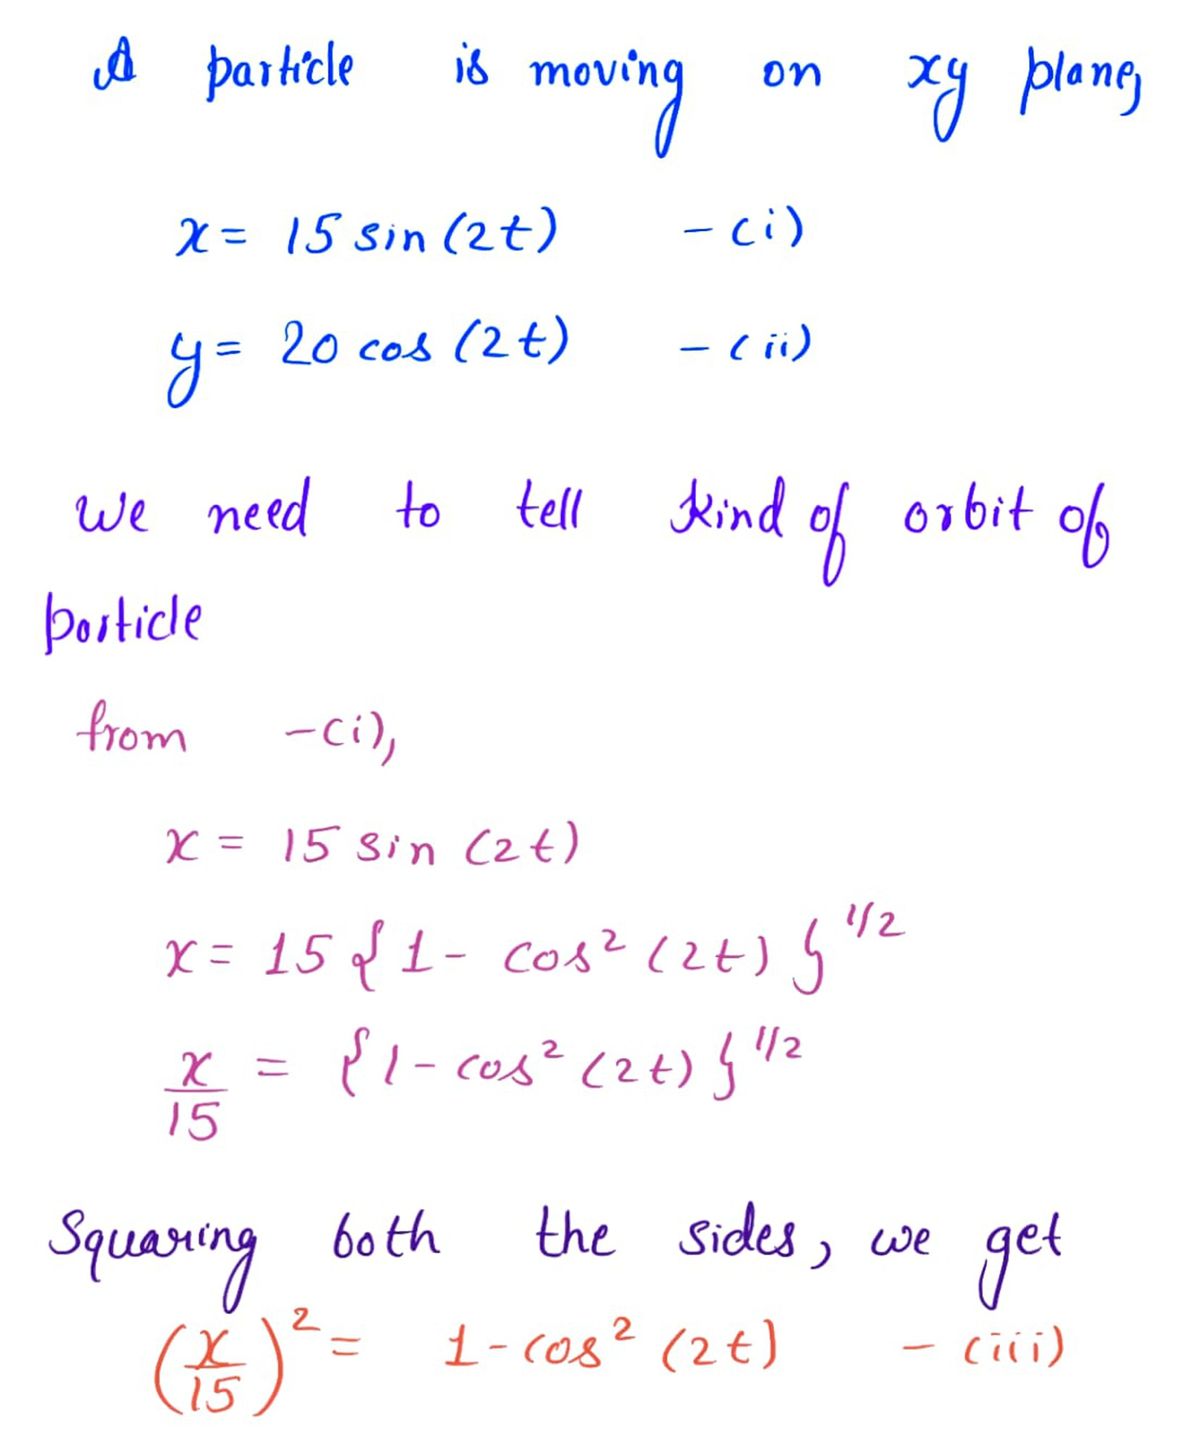 A particle is moving on xy plane,
x = 15 sin (2t) - (i)
y = 20 cos (2t) - (ii)
We need to tell kind of orbit of
particle
from - (i),
x = 15 sin (2t)
x = 15 { 1 - cos² (2t) }^1/2
x/15 = { 1 - cos² (2t) }^1/2
Squaring both the sides, we get
(x/15)² = 1 - cos² (2t) - (iii)